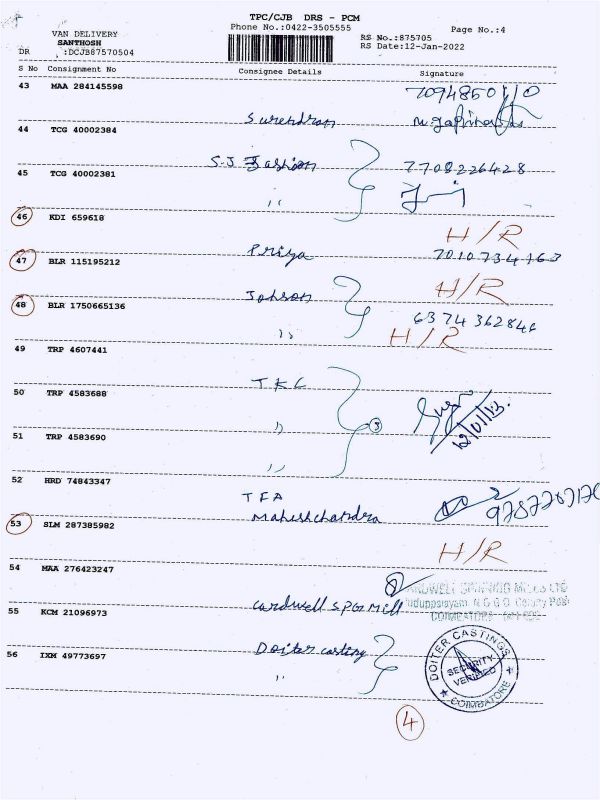 TPC/CJB DRS - PCM
VAN DELIVERY
Phone No.:0422-3505555
Page No.:4
SANTHOSH
RS No.:875705
DR :DCJB87570504
RS Date:12-Jan-2022
S No Consignment No Consignee Details Signature
43 MAA 284145598
Surendran
44 TCG 40002384
S.J Fashion 7708226428
45 TCG 40002381
,,
46 KDI 659618
H/R
Priya 7010734163
47 BLR 115195212
H/R
Johson
48 BLR 1750665136
6374362846
,, H/R
49 TRP 4607441
TKC
50 TRP 4583688
,, 3
51 TRP 4583690
,,
52 HRD 74843347
TFA
Maheshchandra
53 SLM 287385982
H/R
54 MAA 276423247
Cardwell SPG Mill
55 KCM 21096973
Doiter casting
56 IXM 49773697
,,
DOITER CASTINGS
SECURITY
VERIFIED
COIMBATORE
4